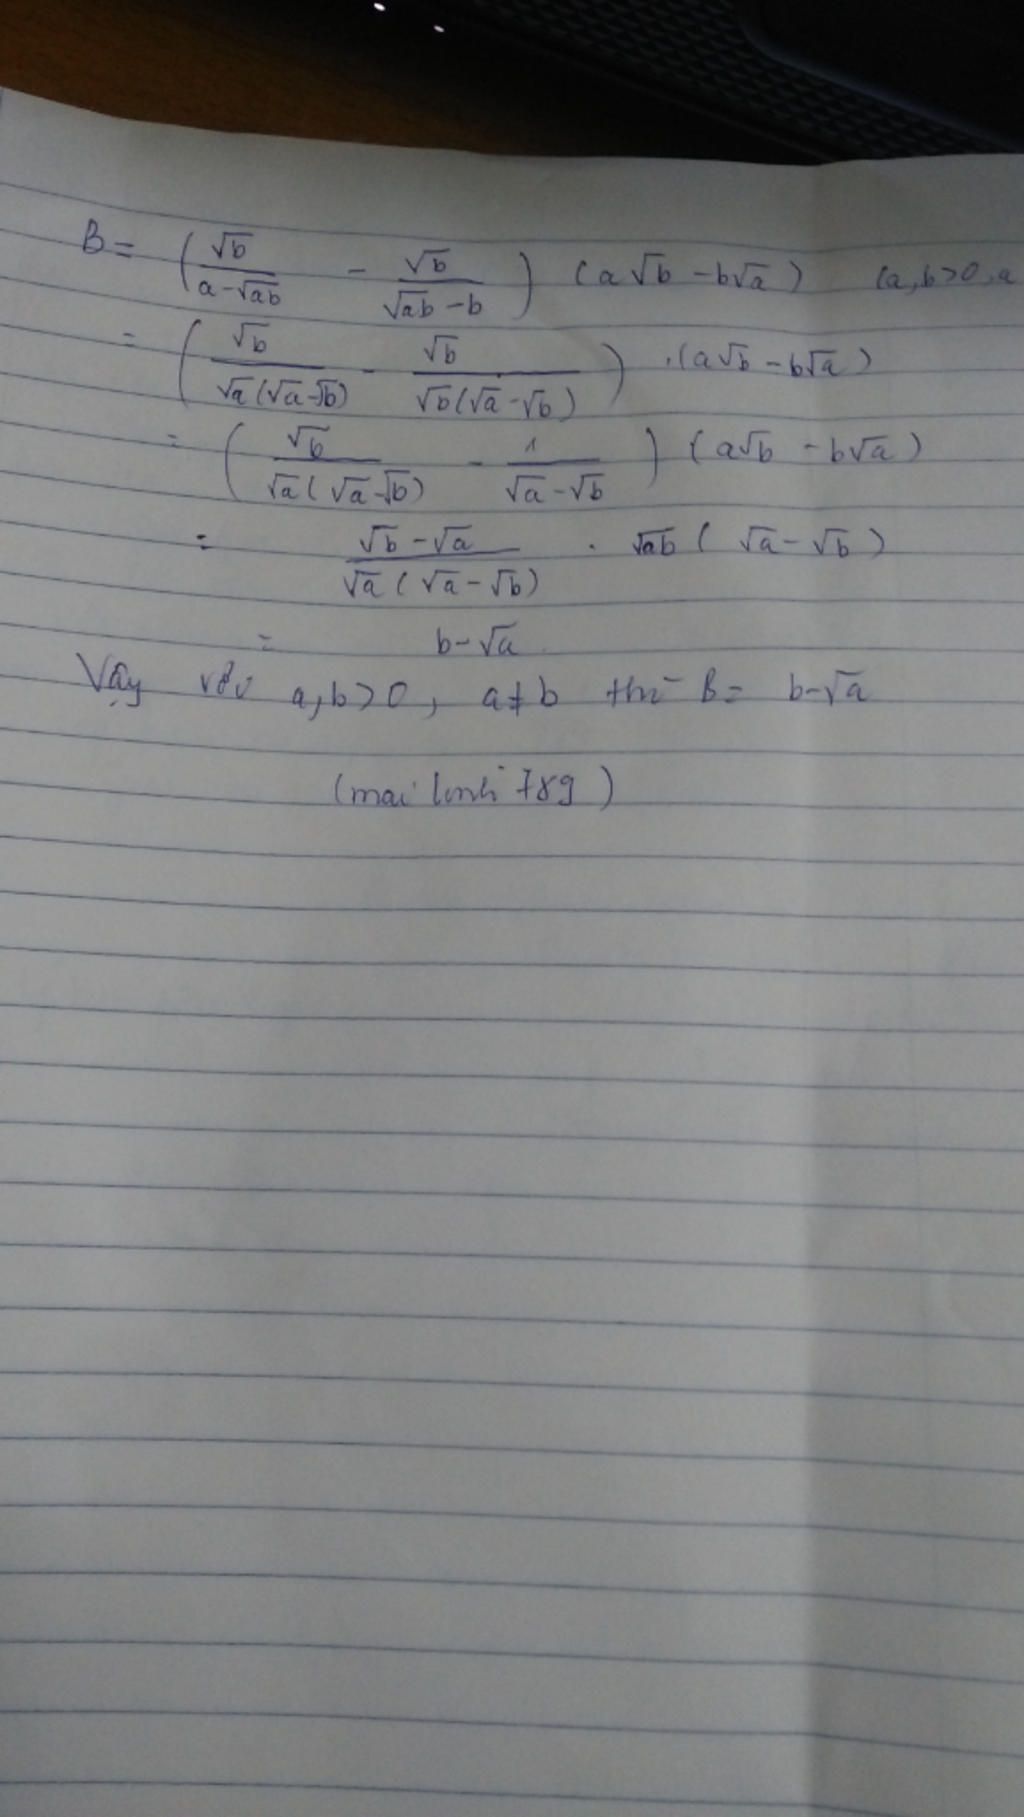 B = (√b/(a-√ab) - √b/(√ab-b)) (a√b - b√a) (a,b>0, a
= (√b/(√a(√a-√b)) - √b/(√b(√a-√b))) .(a√b - b√a)
= (√b/(√a(√a-√b)) - 1/(√a-√b)) (a√b - b√a)
= (√b-√a)/(√a(√a-√b)) . √ab(√a-√b)
= b-√a
Vậy với a,b>0, a≠b thì B= b-√a
(mai linh 789)